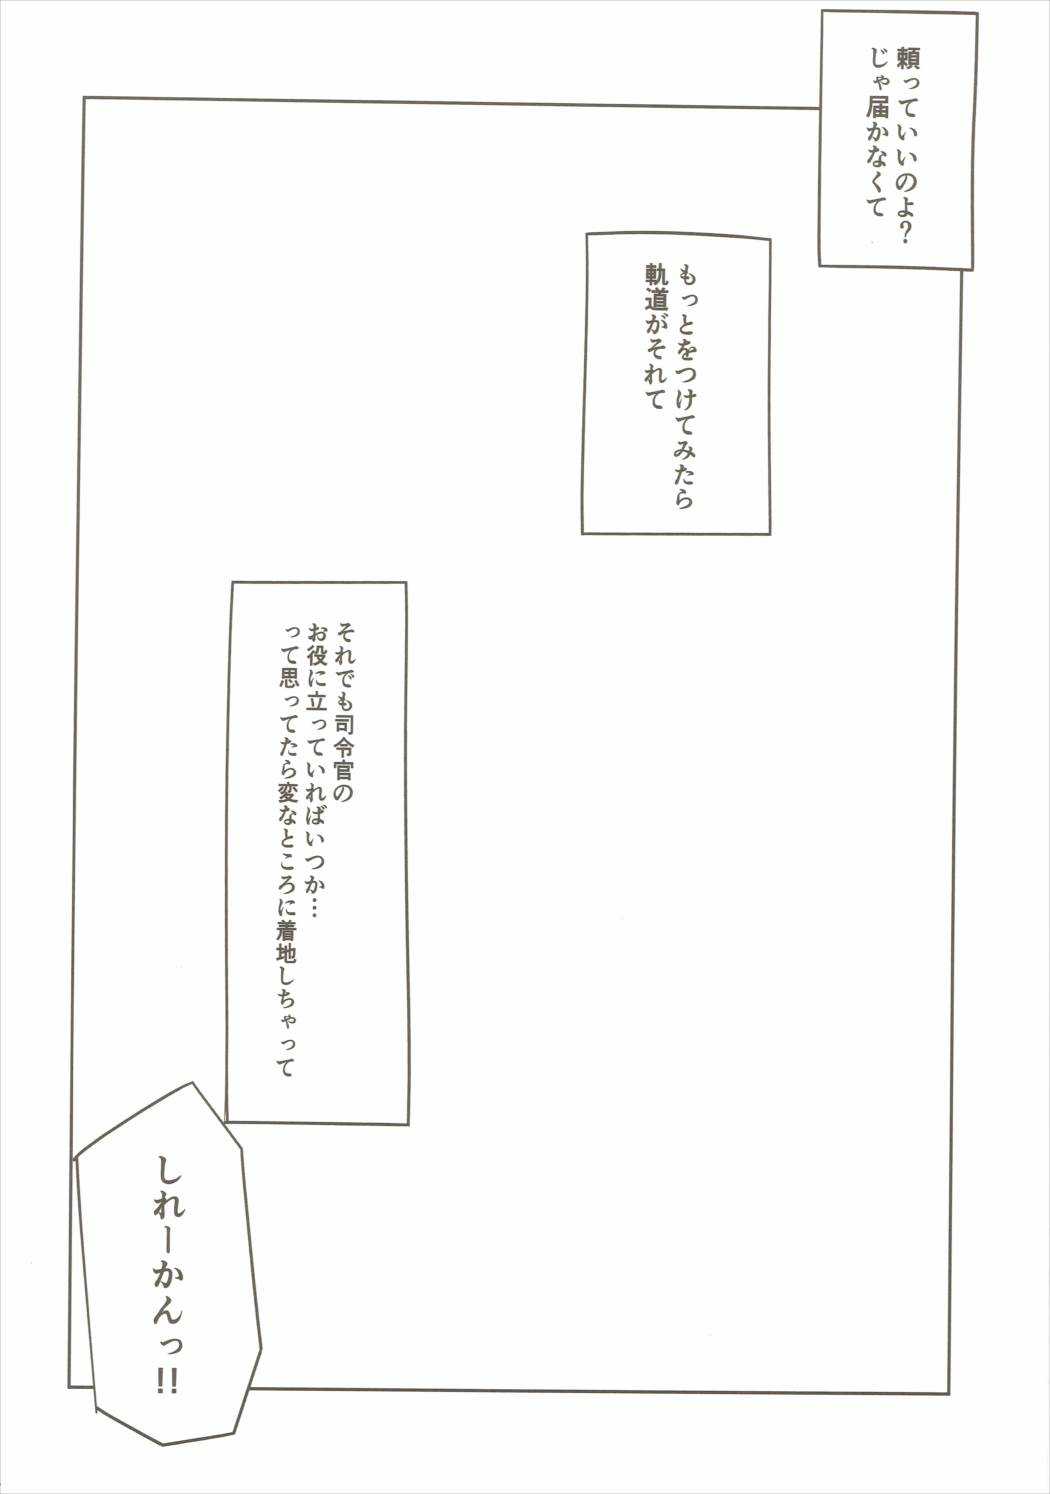 頼っていいのよ?
じゃ届かなくて
もっとをつけてみたら
軌道がそれて
それでも司令官の
お役に立っていればいつか…
って思ってたら変なところに着地しちゃって
しれーかんっ!!